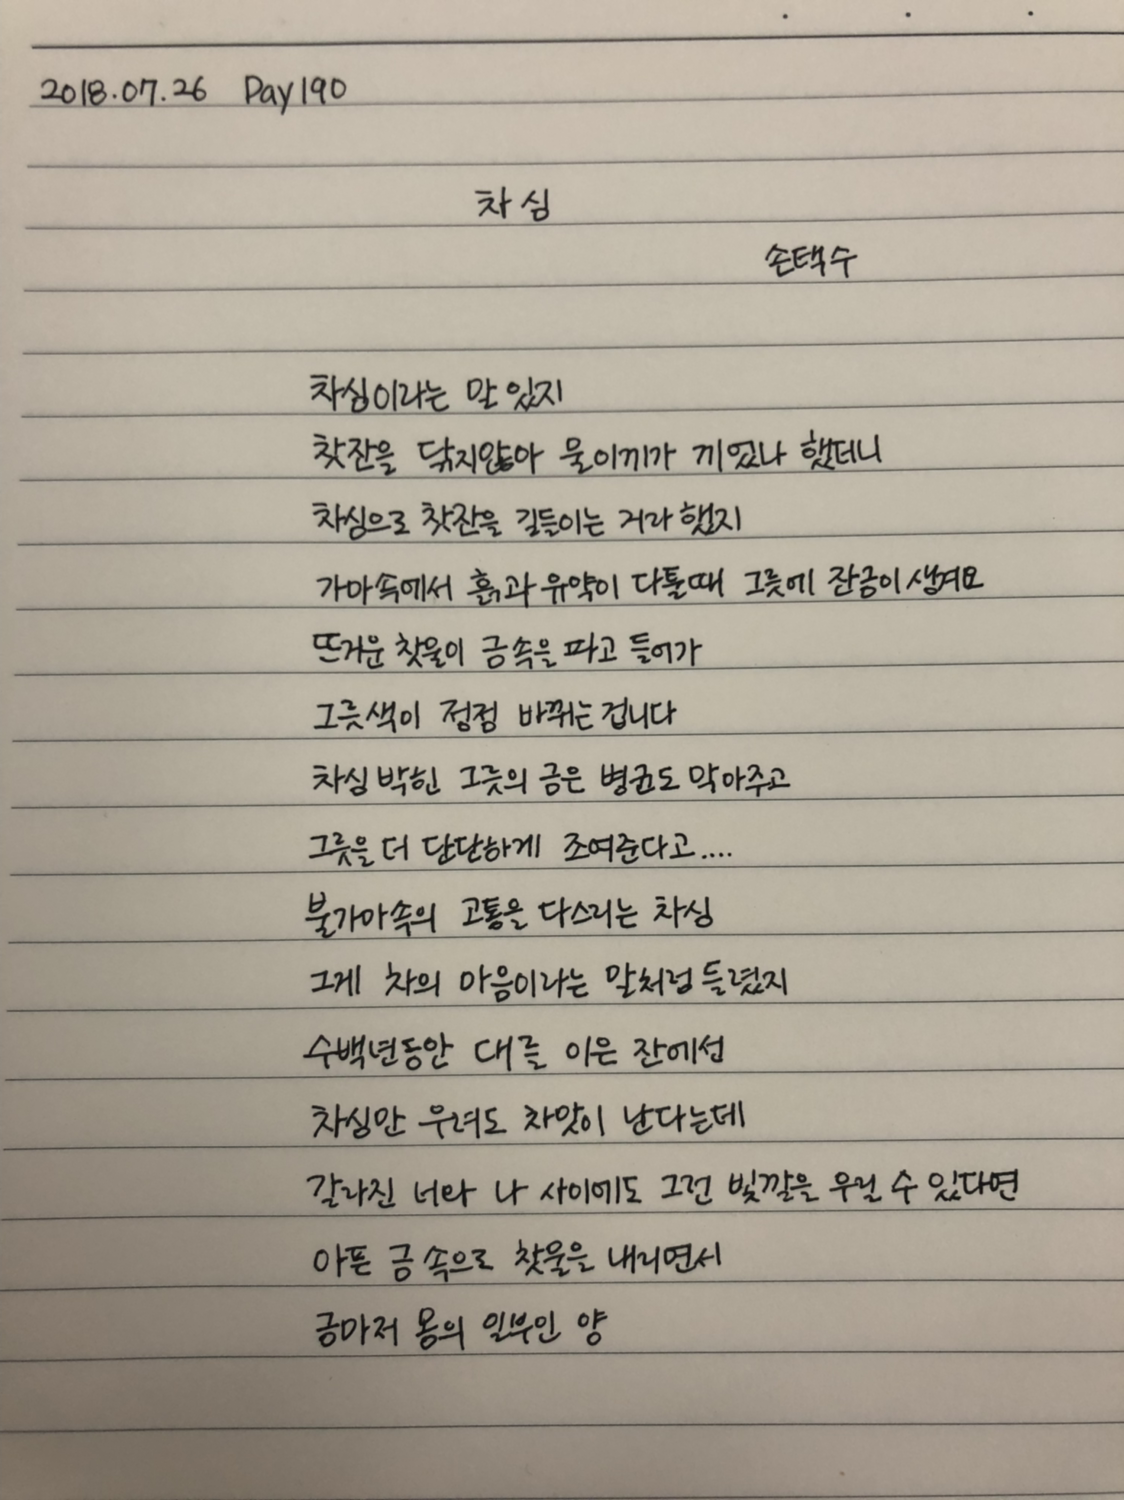 2018.07.26 Day190
차심
손택수
차심이라는 말 있지
찻잔을 닦지않아 물이끼가 끼었나 했더니
차심으로 찻잔을 길들이는 거라 했지
가마속에서 흙과 유약이 다툴때 그릇에 잔금이 생겨요
뜨거운 찻물이 금속을 파고 들어가
그릇색이 점점 바뀌는 겁니다
차심 박힌 그릇의 금은 병균도 막아주고
그릇을 더 단단하게 조여준다고....
불가마속의 고통을 다스리는 차심
그게 차의 마음이라는 말처럼 들렸지
수백년동안 대를 이은 잔에선
차심만 우려도 차맛이 난다는데
갈라진 너와 나 사이에도 그런 빛깔을 우릴 수 있다면
아픈 금 속으로 찻물을 내리면서
금마저 몸의 일부인 양